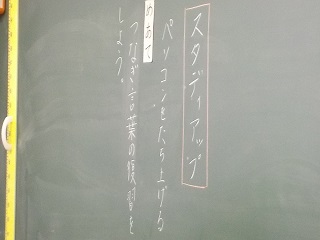 スタディアップ
パソコンをたち上げる
めあて
つなぎ言葉の復習を
しよう。